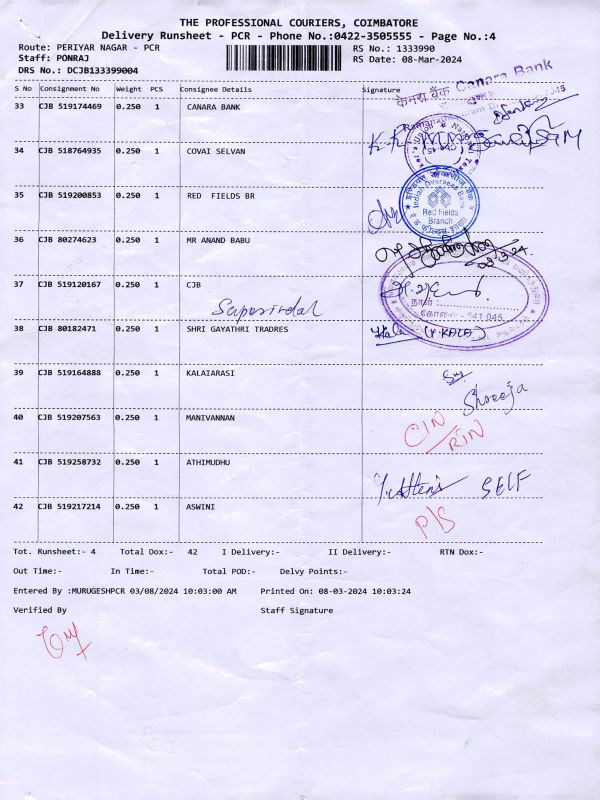 THE PROFESSIONAL COURIERS, COIMBATORE
Delivery Runsheet - PCR - Phone No.:0422-3505555 - Page No.:4
Route: PERIYAR NAGAR - PCR RS No.: 1333990
Staff: PONRAJ RS Date: 08-Mar-2024
DRS No.: DCJB133399004
S No Consignment No Weight PCS Consignee Details Signature
केनरा बैंक Canara Bank
33 CJB 519174469 0.250 1 CANARA BANK
34 CJB 518764935 0.250 1 COVAI SELVAN
35 CJB 519200853 0.250 1 RED FIELDS BR
Indian Overseas Bank
Red Fields
Branch
36 CJB 80274623 0.250 1 MR ANAND BABU
37 CJB 519120167 0.250 1 CJB
நாள் :
கோவை - 641 045
38 CJB 80182471 0.250 1 SHRI GAYATHRI TRADRES
Kala (P.KALA)
39 CJB 519164888 0.250 1 KALAIARASI
Shreeja
40 CJB 519207563 0.250 1 MANIVANNAN
CIN
RTN
41 CJB 519258732 0.250 1 ATHIMUDHU
SELF
42 CJB 519217214 0.250 1 ASWINI
P/S
Tot. Runsheet:- 4 Total Dox:- 42 I Delivery:- II Delivery:- RTN Dox:-
Out Time:- In Time:- Total POD:- Delvy Points:-
Entered By :MURUGESHPCR 03/08/2024 10:03:00 AM Printed On: 08-03-2024 10:03:24
Verified By Staff Signature